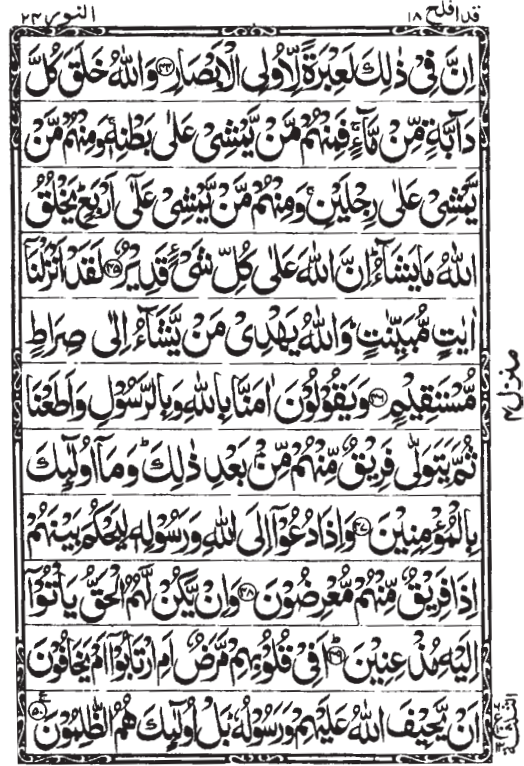 قد افلح ١٨
النور ٢٤
اِنَّ فِیْ ذٰلِكَ لَعِبْرَةً لِّاُولِی الْاَبْصَارِ ﴿۴۴﴾ وَاللّٰهُ خَلَقَ كُلَّ
دَآبَّةٍ مِّنْ مَّآءٍ ۚ فَمِنْهُمْ مَّنْ یَّمْشِیْ عَلٰی بَطْنِهٖ ۚ وَمِنْهُمْ مَّنْ
یَّمْشِیْ عَلٰی رِجْلَیْنِ ۚ وَمِنْهُمْ مَّنْ یَّمْشِیْ عَلٰۤی اَرْبَعٍ ؕ یَخْلُقُ
اللّٰهُ مَا یَشَآءُ ؕ اِنَّ اللّٰهَ عَلٰی كُلِّ شَیْءٍ قَدِیْرٌ ﴿۴۵﴾ لَقَدْ اَنْزَلْنَاۤ
اٰیٰتٍ مُّبَیِّنٰتٍ ؕ وَاللّٰهُ یَهْدِیْ مَنْ یَّشَآءُ اِلٰی صِرَاطٍ
مُّسْتَقِیْمٍ ﴿۴۶﴾ وَیَقُوْلُوْنَ اٰمَنَّا بِاللّٰهِ وَبِالرَّسُوْلِ وَاَطَعْنَا
ثُمَّ یَتَوَلّٰی فَرِیْقٌ مِّنْهُمْ مِّنْۢ بَعْدِ ذٰلِكَ ؕ وَمَاۤ اُولٰٓئِكَ
بِالْمُؤْمِنِیْنَ ﴿۴۷﴾ وَاِذَا دُعُوْۤا اِلَی اللّٰهِ وَرَسُوْلِهٖ لِیَحْكُمَ بَیْنَهُمْ
اِذَا فَرِیْقٌ مِّنْهُمْ مُّعْرِضُوْنَ ﴿۴۸﴾ وَاِنْ یَّكُنْ لَّهُمُ الْحَقُّ یَاْتُوْۤا
اِلَیْهِ مُذْعِنِیْنَ ﴿۴۹﴾ اَفِیْ قُلُوْبِهِمْ مَّرَضٌ اَمِ ارْتَابُوْۤا اَمْ یَخَافُوْنَ
اَنْ یَّحِیْفَ اللّٰهُ عَلَیْهِمْ وَرَسُوْلُهٗ ؕ بَلْ اُولٰٓئِكَ هُمُ الظّٰلِمُوْنَ ﴿۵۰﴾
منزل ۴